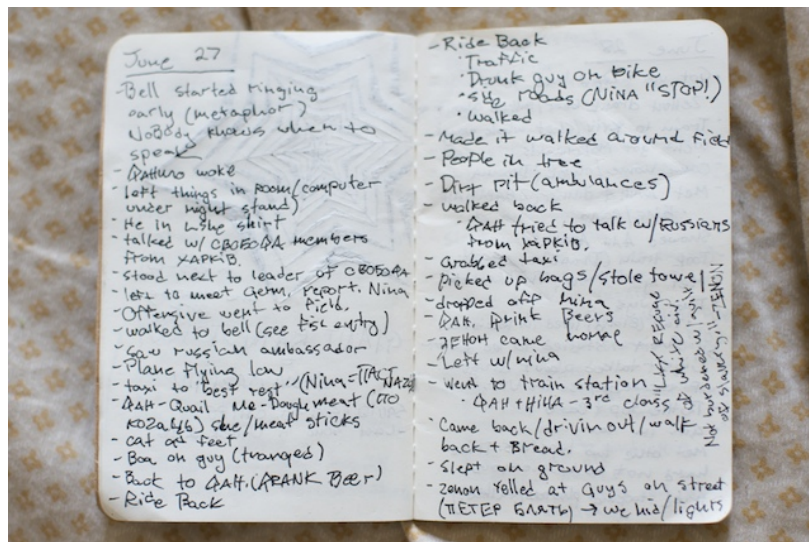 June 27
- Bell started ringing
early (metaphor)
NoBody knows when to
speak
- woke
- Left things in Room/computer
under night stand)
- He in shirt
- talked w/ СВОБОДА members
from ХАРКІВ.
- stood next to leader of СВОБОДА
- left to meet Germ. report. Nina
- Offensive went to Field.
- walked to bell (see entry)
- saw russian ambassador
- Plane flying low
- taxi to "best rest" (Nina =
- ДАН - Quail Me - Doughmeat (СТО
she/meat sticks
- cat at feet
- Boa on guy (tranqed)
- Back to ДАН. (DRANK Beer)
- Ride Back
- Ride Back
· Traffic
· Drunk guy on bike
· roads (NiNA "STOP!)
· walked
- Made it walked around Field
- People in tree
- Dirt pit (ambulances)
- walked back
· ДАН tried to talk w/ RUSSIANS
from ХАРКІВ.
- Grabbed taxi
- picked up bags/stole towel
- dropped off Nina
- ДАН. Drink Beers
- ЗЕНОН came home
- Left w/ nina
- went to train station
· ДАН + НІНА - 3rd class
- Came back/drivin out/walk
back + Bread.
- slept on ground
- zenon yelled at guys on street
(ПЕТЕР БЛЯТЬ) → we hid/lights
of white
Not burdened w/
of slavery" - ZENON